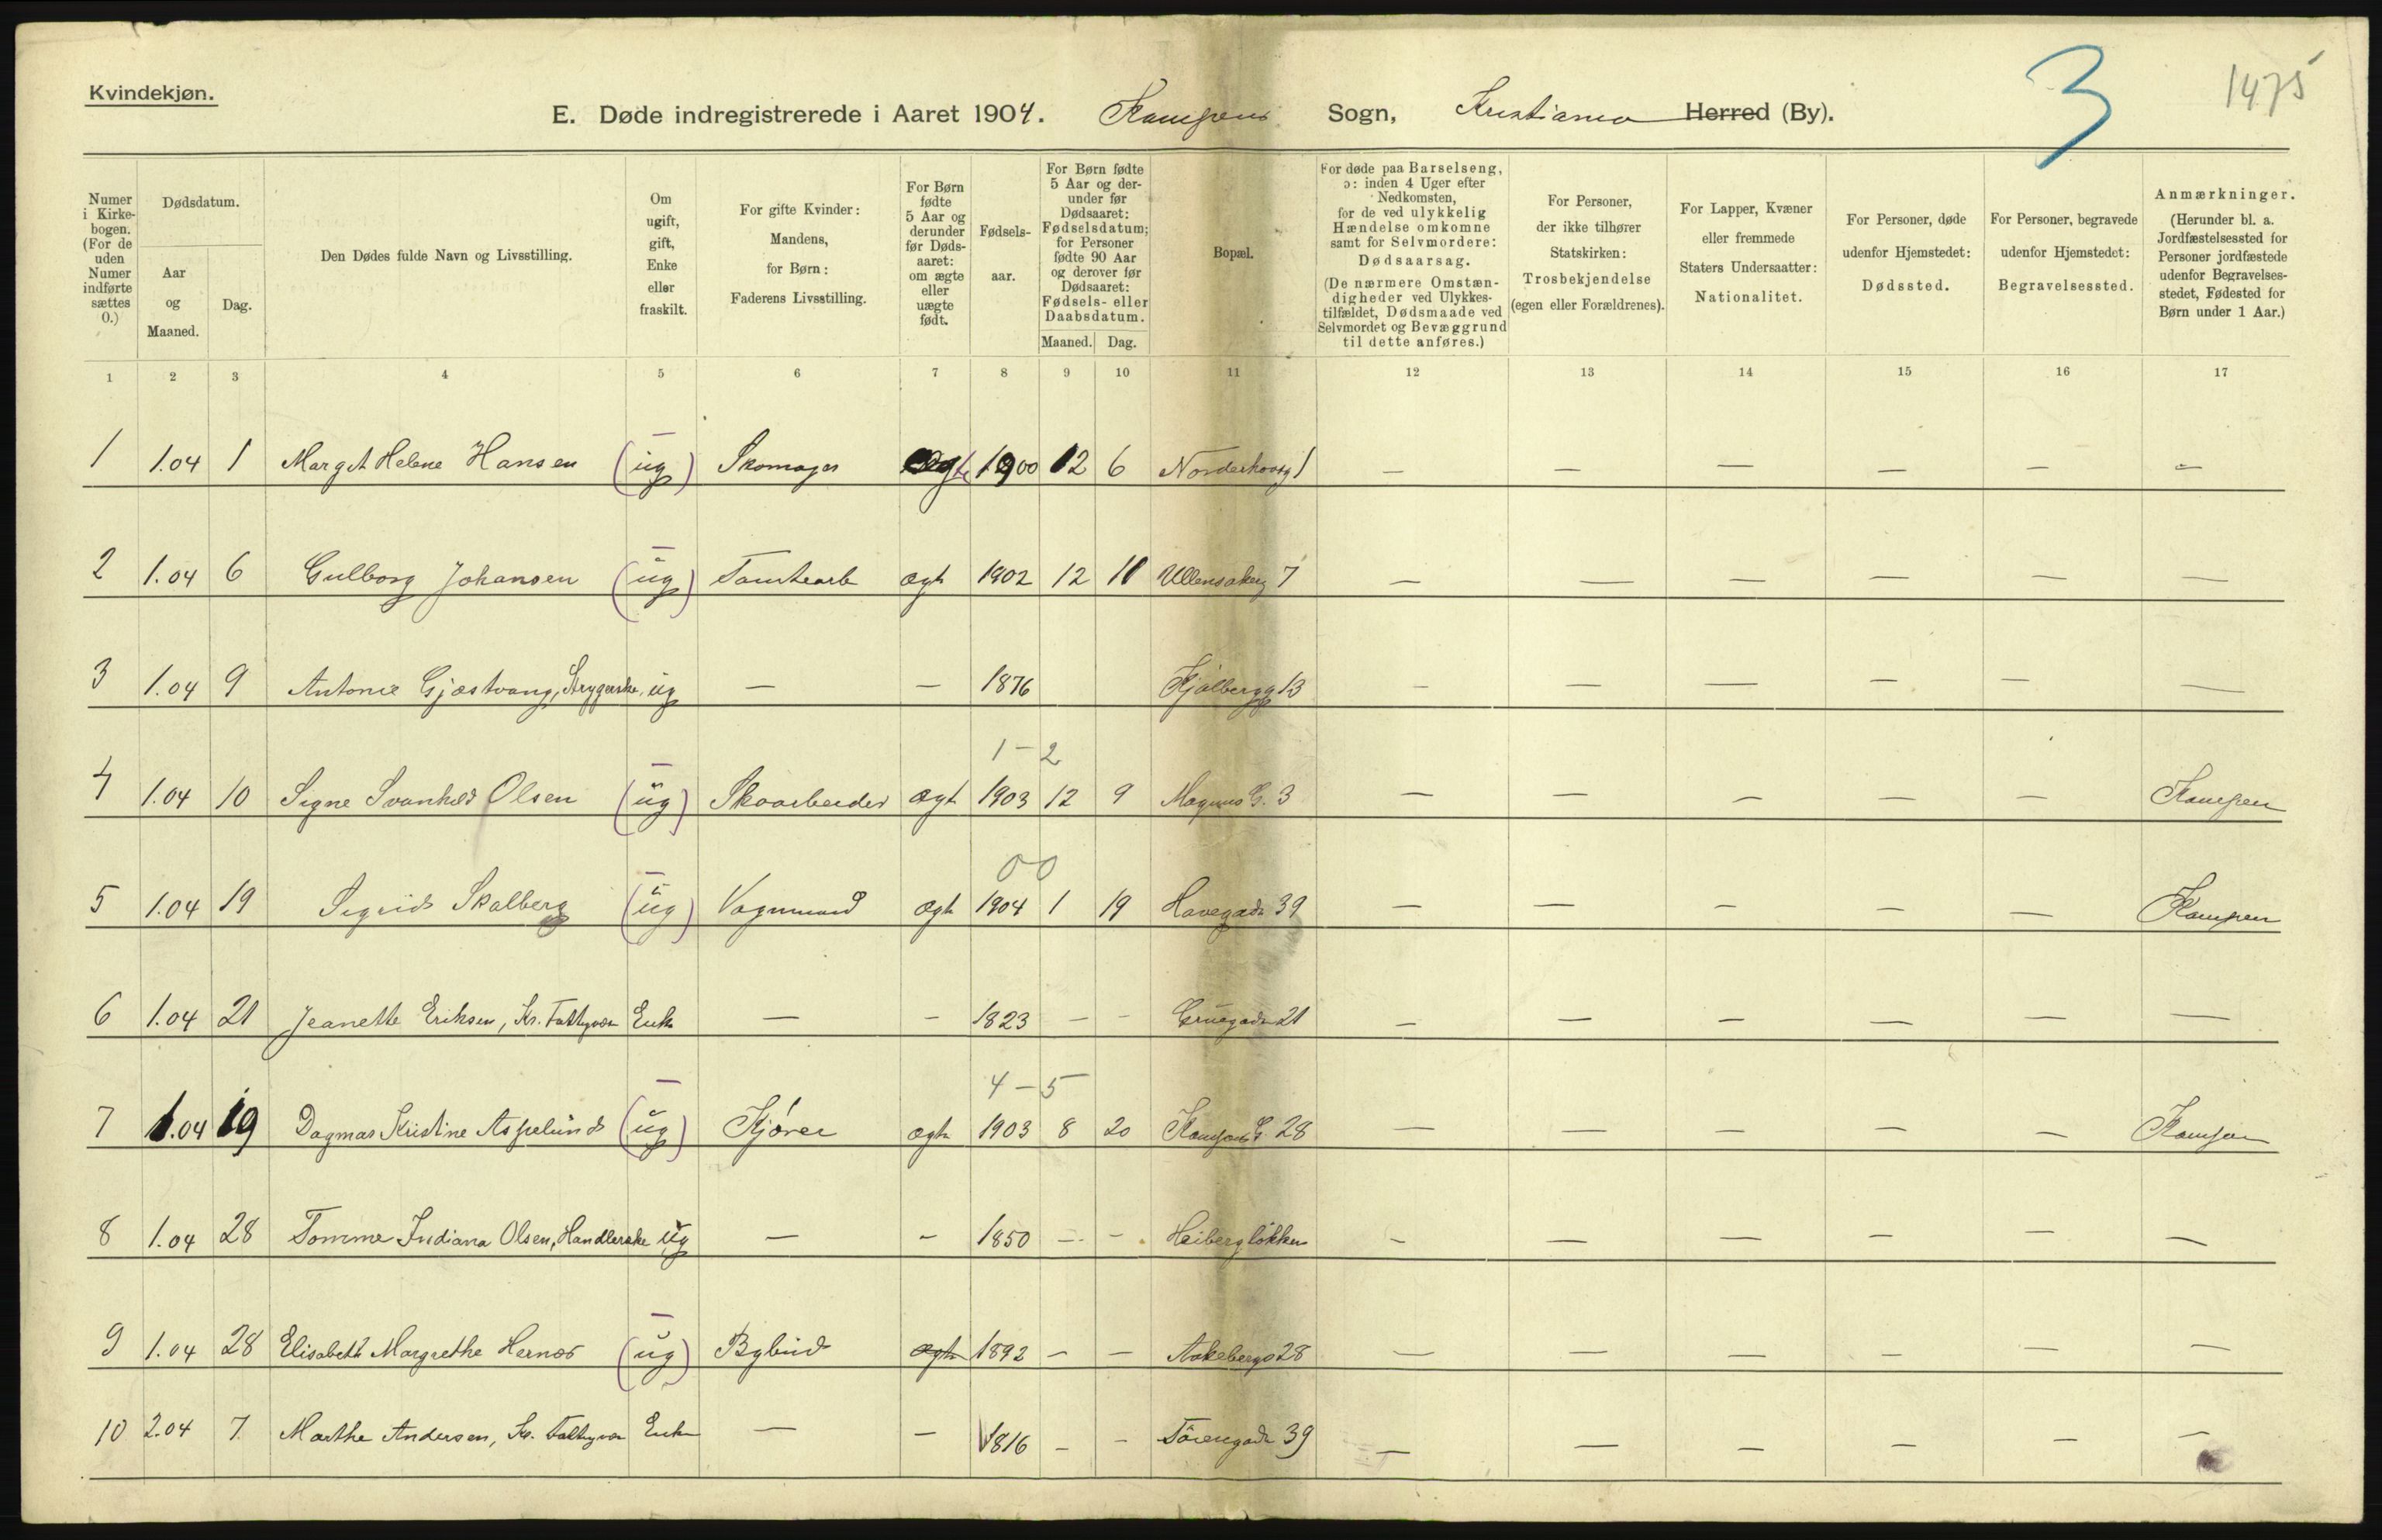 Kvindekjøn.
3
1475
E. Døde indregistrerede i Aaret 1904. Kampens Sogn, Kristiania Herred (By).
Numer i Kirke- bogen. (For de uden Numer indførte sættes 0.)
Dødsdatum.
Aar og Maaned.
Dag.
Den Dødes fulde Navn og Livsstilling.
Om ugift, gift, Enke eller fraskilt.
For gifte Kvinder: Mandens, for Børn: Faderens Livsstilling.
For Børn fødte 5 Aar og derunder før Døds- aaret: om ægte eller uægte født.
Fødsels- aar.
For Børn fødte 5 Aar og der- under før Dødsaaret: Fødselsdatum; for Personer fødte 90 Aar og derover før Dødsaaret: Fødsels- eller Daabsdatum.
Maaned. Dag.
Bopæl.
For døde paa Barselseng, ɔ: inden 4 Uger efter Nedkomsten, for de ved ulykkelig Hændelse omkomne samt for Selvmordere: Dødsaarsag. (De nærmere Omstæn- digheder ved Ulykkes- tilfældet, Dødsmaade ved Selvmordet og Bevæggrund til dette anføres.)
For Personer, der ikke tilhører Statskirken: Trosbekjendelse (egen eller Forældrenes).
For Lapper, Kvæner eller fremmede Staters Undersaatter: Nationalitet.
For Personer, døde udenfor Hjemstedet: Dødssted.
For Personer, begravede udenfor Hjemstedet: Begravelsessted.
Anmærkninger. (Herunder bl. a. Jordfæstelsessted for Personer jordfæstede udenfor Begravelses- stedet, Fødested for Børn under 1 Aar.)
1 2 3 4 5 6 7 8 9 10 11 12 13 14 15 16 17
1 1.04 1 Margit Helene Hansen (ug) Skomager ægte 1900 12 6 Norderhovsg 1 — — — — — —
2 1.04 6 Gulborg Johansen (ug) Tomtearb ægte 1902 12 11 Ullensakerg 7 — — — — — —
3 1.04 9 Antonie Gjæstvang, Strygerske, ug — — 1876 Kjølbergg 13 — — — — — —
1 - 2
4 1.04 10 Signe Svanhild Olsen (ug) Skoarbeider ægt 1903 12 9 Magnus G. 3 — — — — — Kampen
0 0
5 1.04 19 Sigrid Skalberg (ug) Vognmand ægte 1904 1 19 Havegade 39 — — — — — Kampen
6 1.04 21 Jeanette Eriksen, Kr. Fattigvæsen Enke — — 1823 — — Gruegade 21 — — — — — —
4 - 5
7 1.04 19 Dagmar Kristine Aspelund (ug) Kjører ægte 1903 8 20 Kampens G. 28 — — — — — Kampen
8 1.04 28 Tomine Indiana Olsen, Handlerske ug — — 1850 — — Heibergløkken — — — — — —
9 1.04 28 Elisabeth Margrethe Hernæs (ug) Bybud ægte 1892 — — Aakebergv 28 — — — — — —
10 2.04 7 Marthe Andersen, Kr. Fattigvæsen Enke — — 1816 — — Tøiengade 39 — — — — — —